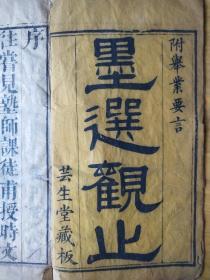 附舉業要言
墨選觀止
芸生堂藏板
序
往嘗見塾師課徒甫授時文